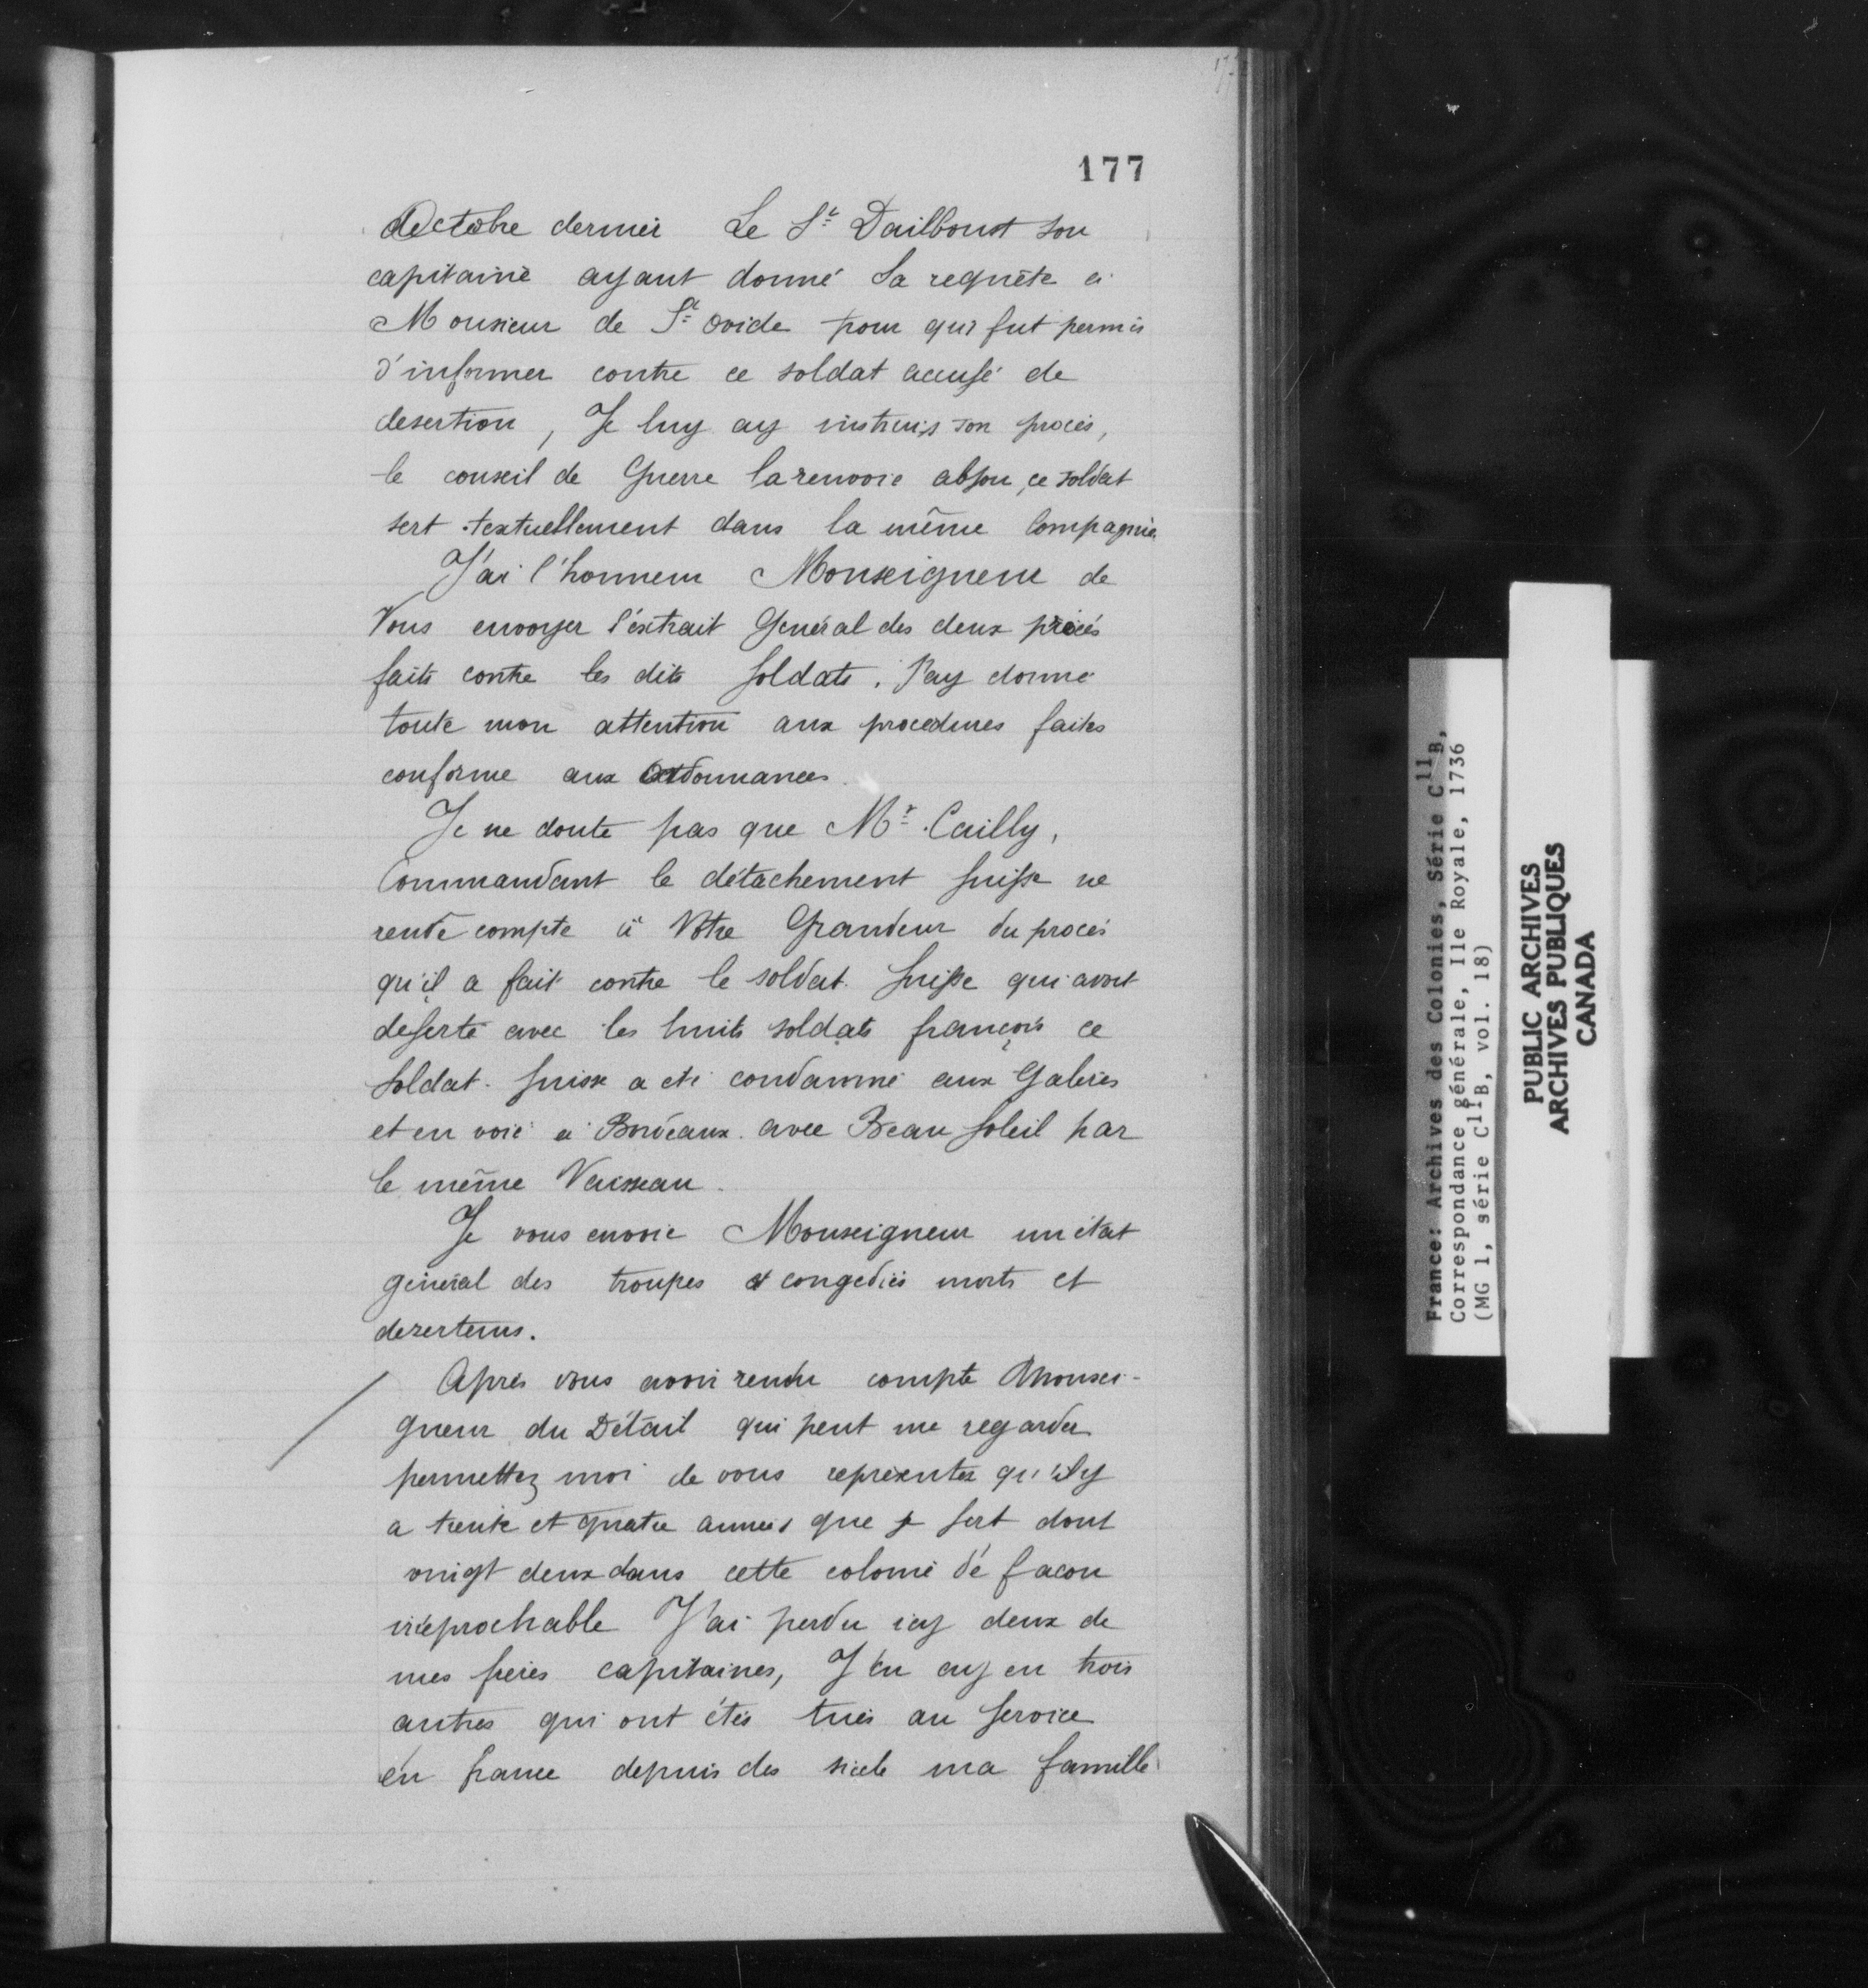 177
Octobre dernier Le S.r Dailboust son
capitaine ayant donné Sa requête à
Monsieur de S.t Ovide pour qui fut permis
d'informer contre ce soldat accusé de
desertion, Je luy ay instruis son procés,
le conseil de Guerre la renvoie absou, ce soldat
sert textuellement dans la même Compagnie
J'ai l'honneur Monseigneur de
Vous envoyer l'extrait Général des deux procés
faits contre les dits Soldats. J'ay donné
toute mon attention aux procedures faites
conforme aux Ordonnances.
Je ne doute pas que M.r Cailly,
Commandant le détachement Suisse ne
rende compte à Votre Grandeur du procés
qu'il a fait contre le soldat Suisse qui avoit
deserté avec les huits soldats françois ce
Soldat Suisse a eté condamné aux Galeres
et en voié à Bordeaux avec Beau Soleil par
le même Vaisseau.
Je vous envoie Monseigneur un état
général des troupes et congediés morts et
dezerteurs.
Après vous avoir rendu compte Monsei-
gneur du Détail qui peut me regarder
permettez moi de vous représenter qu'il y
a trente et quatre années que je sert dont
vingt deux dans cette colonie dé facon
irréprochable J'ai perdu icy deux de
mes freres capitaines, J'en ay eu trois
autres qui ont étés tués au Service
en france depuis des siecle ma famille
France: Archives des Colonies, Série C11B,
Correspondance générale, Ile Royale, 1736
(MG 1, série C11B, vol. 18)
PUBLIC ARCHIVES
ARCHIVES PUBLIQUES
CANADA